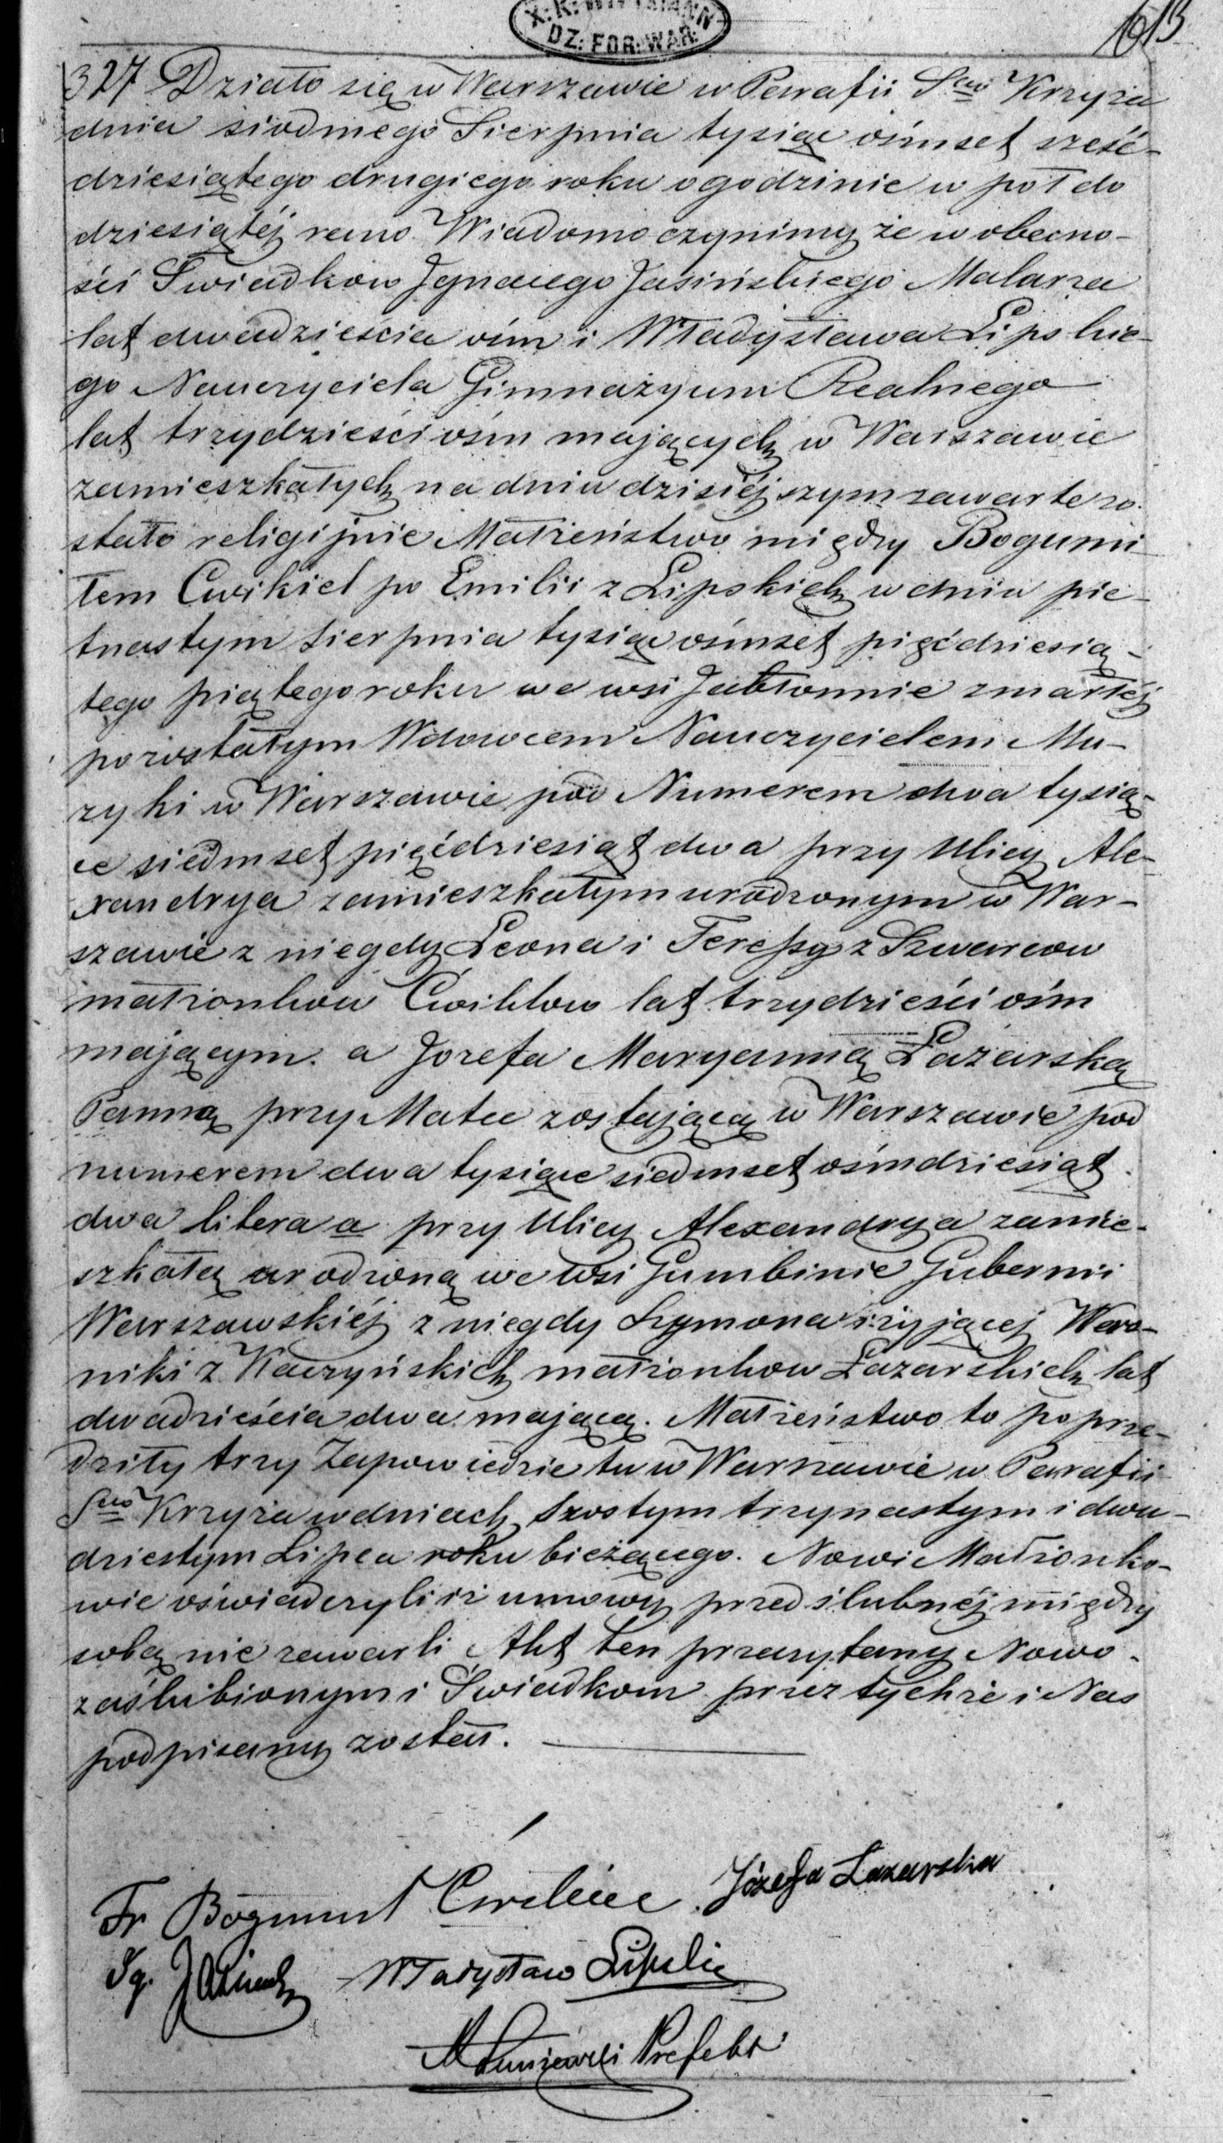 DZ: FOR: WAR:
613
327 Działo się w Warszawie w Parafii Sgo Krzyża
dnia siodmego Sierpnia tysiąc ośmset sześć-
dziesiątego drugiego roku o godzinie w poł do
dziesiątéj rano. Wiadomo czynimy że w obecno-
ści Świadkow Ignacego Jasińskiego Malarza
lat dwadzieścia ośm i Władysława Lipskie-
go Nauczyciela Gimnazyum Realnego
lat trzydzieści ośm mających w Warszawie
zamieszkałych na dniu dzisiéjszym zawarte zo-
stało religijnie Małżeństwo między Bogumi
łem Cwikiel po Emilii z Lipskich w dniu pie-
tnastym Sierpnia tysiąc ośmset pięćdziesią-
tego piątego roku we wsi Jabłonnie zmarłéj
pozostałym Wdowcem Nauczycielem Mu-
zyki w Warszawie pod Numerem dwa tysią-
ce siedmset pięćdziesiąt dwa przy Ulicy Ale-
xandrya zamieszkałym urodzonym w War-
szawie z niegdy Leona i Teressy z Szwarcow
małżonkow Cwiklow lat trzydzieści ośm
mającym. a Jozefa Maryanną Łazarską
Panną przy Matce zostającą w Warszawie pod
numerem dwa tysiące siedmset ośmdziesiąt
dwa litera a przy Ulicy Alexandrya zamie-
szkałą urodzoną we Wsi Gumbinie Gubernii
Warszawskiéj z niegdy Szymona i żyjącej Wero-
niki z Kaczyńskich małżonkow Łazarskich lat
dwadzieścia dwa mającą. Małżeństwo to poprze-
dziły trzy Zapowiedzie tu w Warszawie w Parafii
Sgo Krzyża w dniach szostym trzynastym i dwu-
dziestym Lipca roku bieżącego. Nowi Małżonko-
wie oświadczyli iż umowy przedślubnéj między
sobą nie zawarli Akt ten przeczytany Nowo-
zaślubionym i Świadkom przez tychże i Nas
podpisany został.
Fr Bogumił Józefa Lazarska
Ig. Jasiński Władysław Lipski
Prefekt